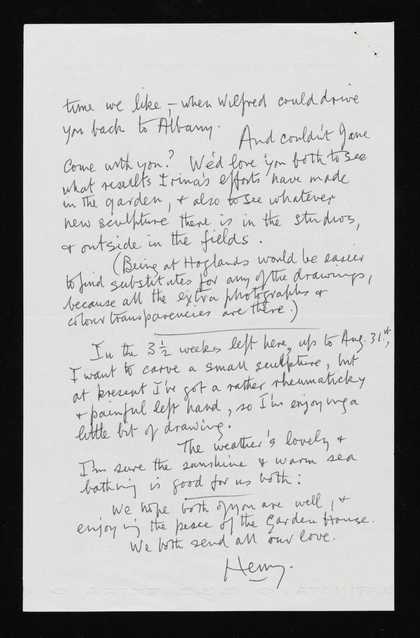 time we like, – when Wilfred could drive
you back to Albany.
And couldn't Jane
come with you? We'd love you both to see
what results Irina's efforts have made
in the garden, & also to see whatever
new sculpture there is in the studios,
& outside in the fields.
(Being at Hoglands would be easier
to find substitutes for any of the drawings,
because all the extra photographs &
colour transparencies are there.)
In the 3½ weeks left here, up to Aug. 31st,
I want to carve a small sculpture, but
at present I've got a rather rheumaticky
& painful left hand, so I'm enjoying a
little bit of drawing.
The weather's lovely &
I'm sure the sunshine & warm sea
bathing is good for us both:
We hope both of you are well, &
enjoying the peace of the Garden House.
We both send all our love.
Henry.